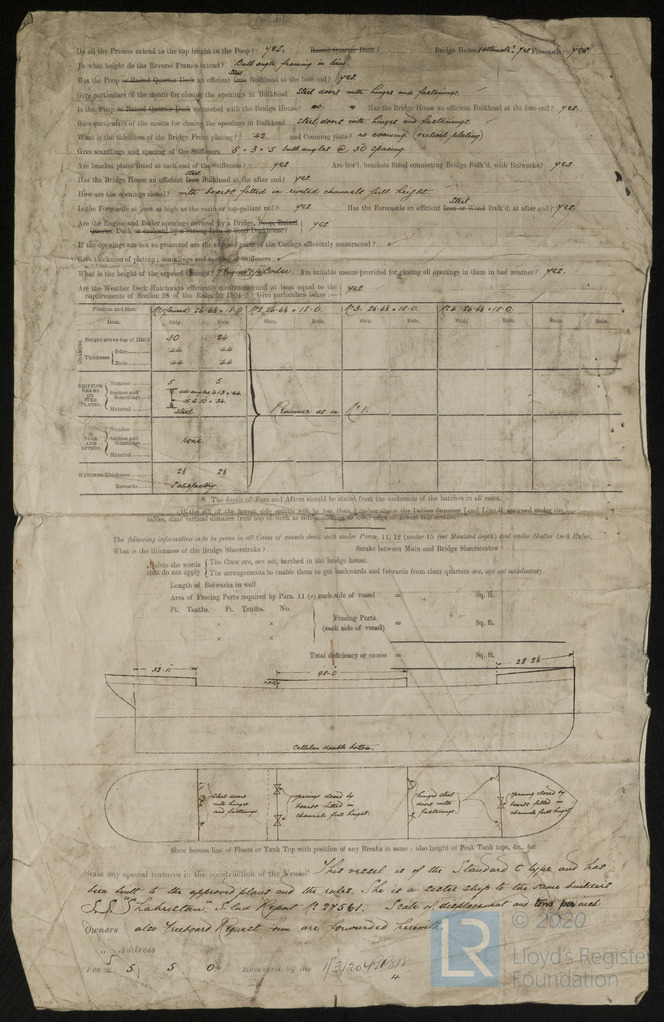 Do all the Frames extend to the top height in the Poop? yes. Raised Quarter Deck? Bridge House yes Forecastle? yes
To what height do the Reverse Frames extend? Bull angle framing in lieu.
Has the Poop or Raised Quarter Deck an efficient Iron Steel Bulkhead at the fore end? yes.
Give particulars of the means for closing the openings in Bulkhead Steel doors with hinges and fastenings.
Is the Poop or Raised Quarter Deck connected with the Bridge House? no. Has the Bridge House an efficient Bulkhead at the fore end? yes.
Give particulars of the means for closing the openings in Bulkhead Steel doors with hinges and fastenings.
What is the thickness of the Bridge Front plating? .42 and Coaming plate? no coaming (vertical plating)
Give scantling and spacing of the Stiffeners 8 × 3 × .5 bull angles @ 30 spacing.
Are bracket plates fitted at each end of the Stiffeners? yes Are hor'l. brackets fitted connecting Bridge Bulk'd. with Bulwarks? yes.
Has the Bridge House an efficient Iron Steel Bulkhead at the after end? yes.
How are the openings closed? with boards fitted in riveted channels full height.
Is the Forecastle at least as high as the main or top-gallant rail? yes. Has the Forecastle an efficient Iron or Wood Steel Bulk'd. at after end? yes.
Are the Engine and Boiler openings covered by a Bridge, Poop, Raised
Quarter Deck or enclosed by a Strong Iron or Steel Deckhouse? yes.
If the openings are not so protected are the exposed parts of the Casings efficiently constructed?
Give thickness of plating; scantlings and spacing of Stiffeners
What is the height of the exposed Casings? Are suitable means provided for closing all openings in them in bad weather? yes.
Are the Weather Deck Hatchways efficiently constructed and at least equal to the
requirements of Section 28 of the Rules for 1904-5? Give particulars below:— yes
Position and size: No. 1 (forward) 26.6½ × 18.0 No. 2. 26.6½ × 18.0. No. 3. 26.6½ × 18.0. No. 4. 26.6½ × 18.0.
Item. Ship. Rule. Ship. Rule. Ship. Rule. Ship. Rule.
COAMING Height above top of Deck 30 24
Thickness Sides .44 .44
Ends .44 .44
SHIFTING BEAMS OR WEB PLATES Number 5 5
Section and Scantlings
Material Steel
Remainder as in No. 1.
FORE AND AFTERS Number
Section and Scantlings none
Material
HATCHES Thickness 2½ 2½
Remarks Satisfactory
※ The depth of Fore and Afters should be stated from the underside of the hatches in all cases.
The following information is to be given in all Cases of vessels dealt with under Paras. 11, 12 (under 15 feet Moulded depth) and under Shelter Deck Rules.
What is the thickness of the Bridge Sheerstrake? Strake between Main and Bridge Sheerstrakes?
Delete the words that do not apply
The Crew are, are not, berthed in the bridge house.
The arrangements to enable them to get backwards and forwards from their quarters are, are not satisfactory.
Length of Bulwarks in well
Area of Freeing Ports required by Para. 11 (e) each side of vessel = Sq. ft.
Ft. Tenths. Ft. Tenths. No.
× ×
Freeing Ports (each side of vessel) = Sq. ft.
× ×
Total deficiency or excess = Sq. ft.
32.11 98.0 28.2½
Cellular double bottom.
Steel doors with hinges and fastenings.
openings closed by boards fitted in channels full height.
hinged steel doors with fastenings.
opening closed by boards fitted in channels full height.
Show bottom line of Floors or Tank Top with position of any Breaks in same; also height of Peak Tank tops, &c., &c.
State any special features in the construction of the Vessel This vessel is of the Standard C type and has
been built to the approved plans and the rules. She is a sister ship to the same builders
Report No. 27561. Scale of displacement and tons per inch
Owners also Freeboard Request form are forwarded herewith.
" Address
Fee £ 5 : 5 : 0. Received by me 1/3/20
LR
© 2020
Lloyd's Register
Foundation